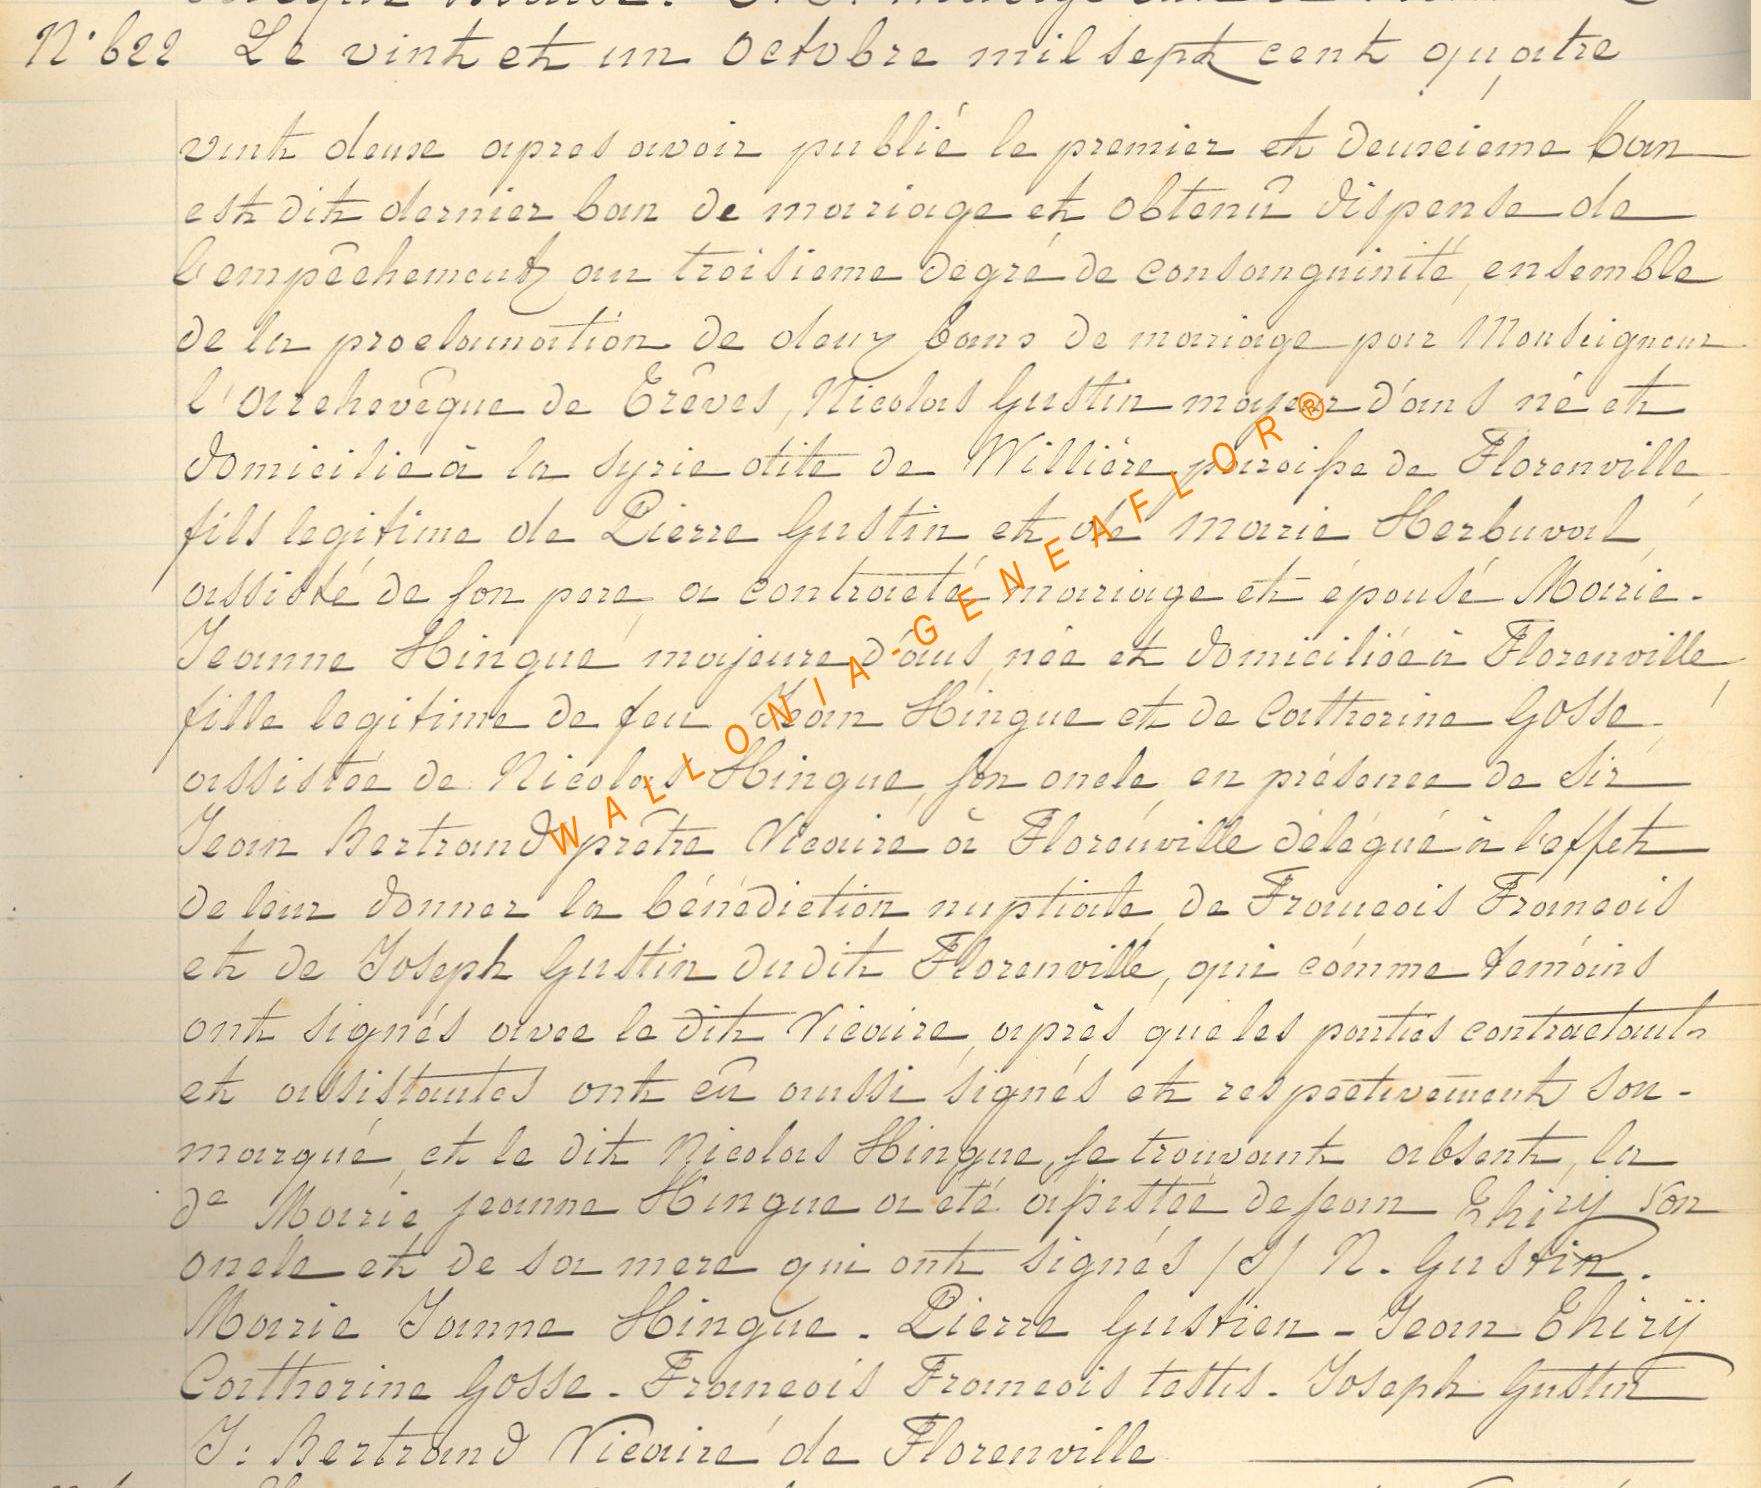 N° 622 Le vint et un octobre mil sept cent quatre
vint deuse apres avoir publié le premier et deuxeieme ban
est dit dernier ban de mariage et obtenû dispense de
l'empêchement au troisieme degré de consanguinité, ensemble
de la proclamation de deux bans de mariage par Monseigneur
l'archevêque de Trêves, Nicolas Gustin majeur d'ans né et
domicilié à la syrie dite de Willière paroisse de Florenville
fils legitime de Pierre Gustin et de Marie Herbuval,
assisté de son pere, a contracté mariage et épousé Marie-
Jeanne Hingue majeure d'ans, née et domiciliée à Florenville
fille legitime de feu Jean Hingue et de Catherine Gosse,
assistée de Nicolas Hingue, son oncle, en présence de Sir
Jean Bertrand prêtre Vicaire à Florenville délégué à l'effet
de leur donner la bénédiction nuptiale, de Francois Francois
et de Joseph Gustin dudit Florenville, qui comme temoins
ont signés avec le dit Vicaire, après que les parties contractants
et assistantes ont eû aussi signés et respectivement sou-
marqué, et le dit Nicolas Hingue, se trouvant absent, la
de Marie jeanne Hingue a été assistée de jean Thirÿ son
oncle et de sa mere qui ont signés (S) N. Gustin.
Marie Janne Hingue - Pierre Gustien - Jean Thirÿ
Catherine Gosse - Francois Francois testis - Joseph Gustin
J: Bertrand Vicaire de Florenville
WALLONIA-GENEAFLOR®